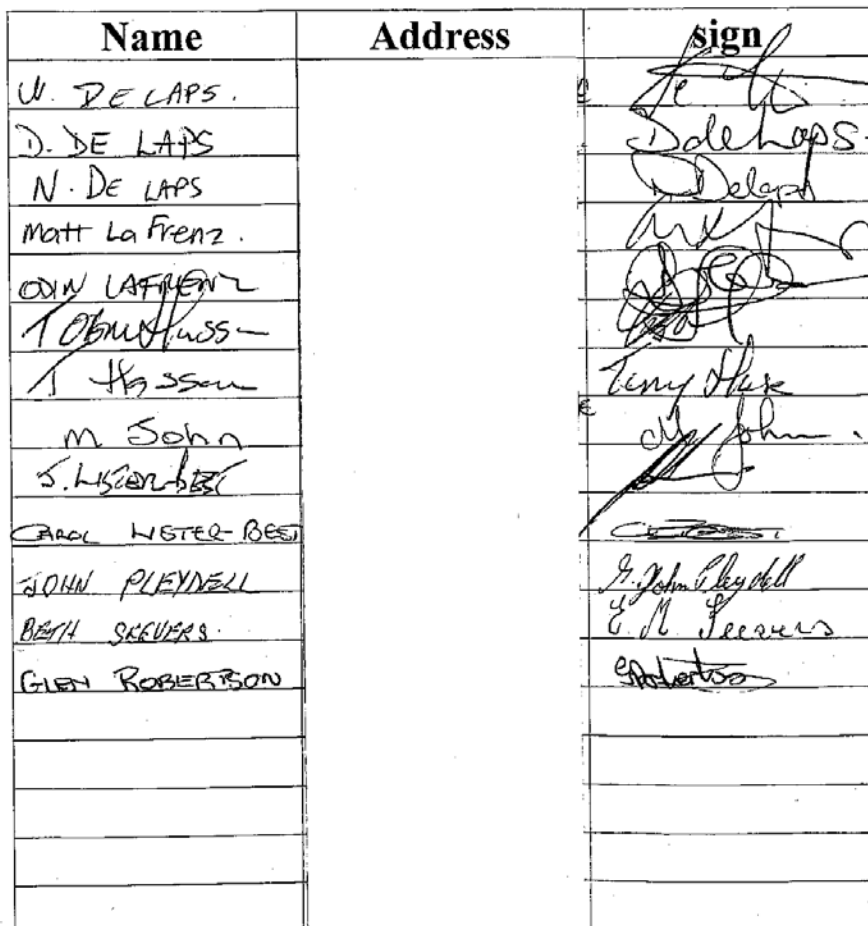 Name Address sign
W. DE LAPS.
D. DE LAPS D de Laps.
N. DE LAPS N Delaps
Matt La Frenz.
ODIN LAFRENZ
T Hassan Tony
M John M John.
J. LISTER-BEST
CAROL LISTER-BEST
JOHN PLEYDELL G. John Pleydell
BETH SEEVERS. E M Seevers
GLEN ROBERTSON GRobertson